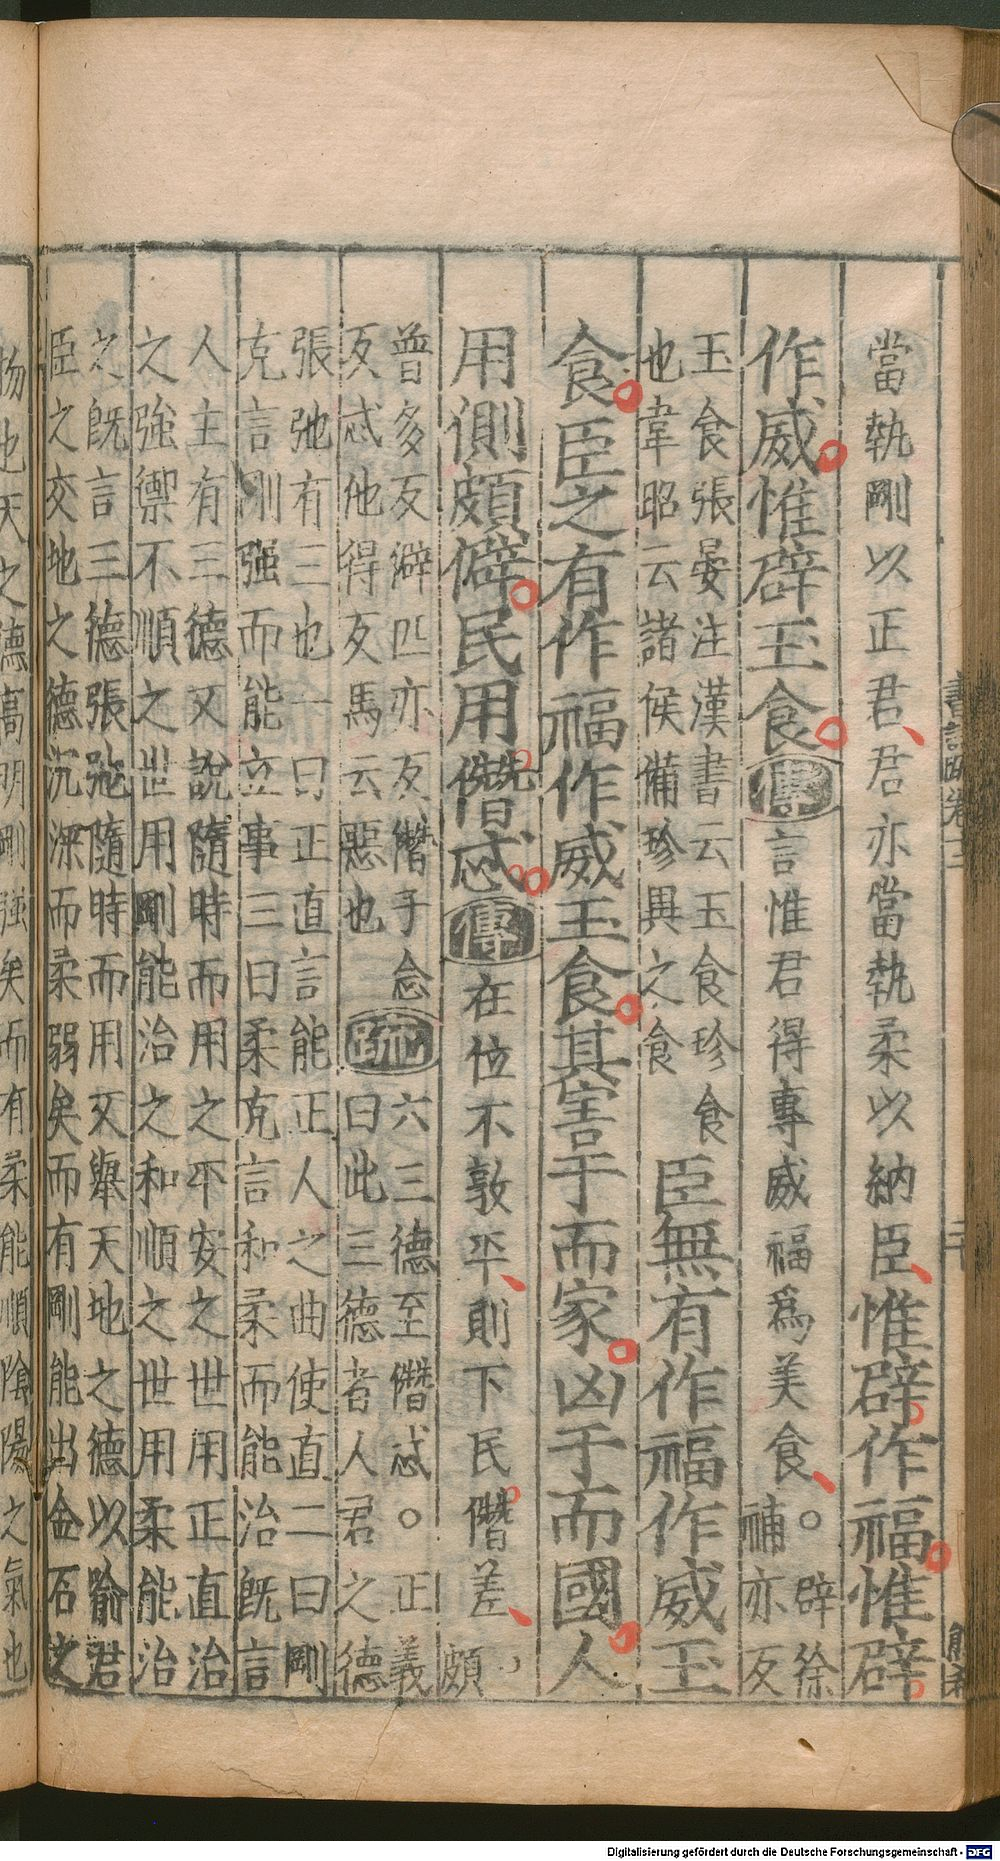 當執剛以正君君亦當執柔以納臣惟辟作福惟辟
作威惟辟玉食傳言惟君得專威福爲美食。辟徐
補亦反
玉食張晏注漢書云玉食珍食
也韋昭云諸侯備珍異之食
臣無有作福作威玉
食臣之有作福作威玉食其害于而家凶于而國人
用側頗僻民用僭忒傳在位不敦平則下民僭差頗
普多反僻匹亦反僭子念
反忒他得反馬云惡也
疏
六三德至僭忒。正義
曰此三德者人君之德
張弛有三也一曰正直言能正人之曲使直二曰剛
克言剛强而能立事三曰柔克言和柔而能治旣言
人主有三德又說隨時而用之平安之世用正直治
之強禦不順之世用剛能治之和順之世用柔能治
之旣言三德張弛隨時而用又舉天地之德以喻君
臣之交地之德沉深而柔弱矣而有剛能出金石之
物也天之德高明剛强矣而有柔能順陰陽之氣也
書
二十
Digitalisierung gefördert durch die Deutsche Forschungsgemeinschaft - DFG